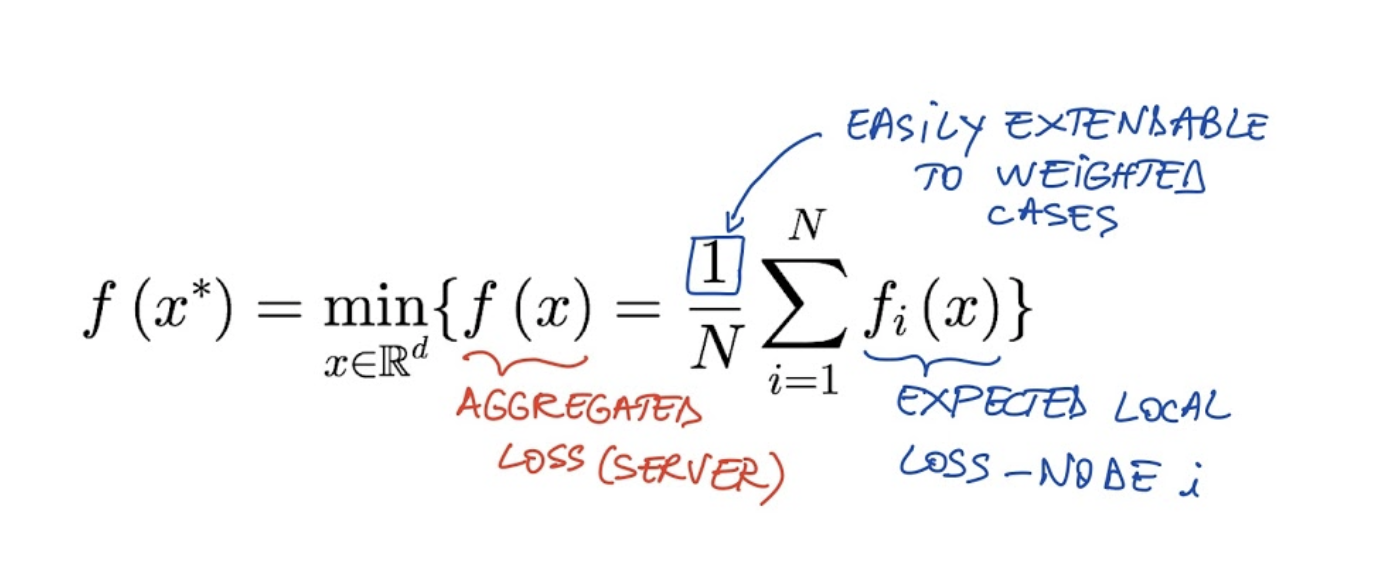 EASILY EXTENDABLE
TO WEIGHTED
CASES
f (x*) = min_{x∈ℝ^d} {f (x) = 1/N ∑_{i=1}^{N} f_i (x)}
AGGREGATED
LOSS (SERVER)
EXPECTED LOCAL
LOSS – NODE i